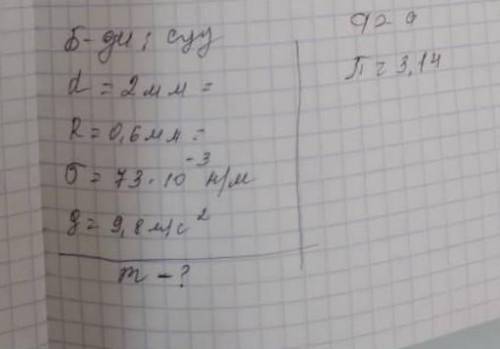 Б-дит; суу
d = 2мм =
R = 0,6мм =
σ = 73·10⁻³ н/м
g = 9,8м/с²
m - ?
П = 3,14